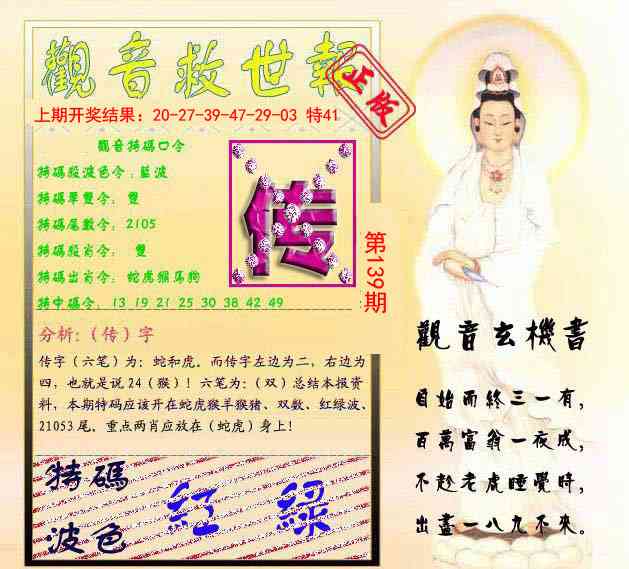 觀音救世報
正版
上期开奖结果：20-27-39-47-29-03 特41
觀音特碼口令
特碼殺波色令：藍波
特碼單雙令： 雙
特碼尾數令：2105
特碼殺肖令： 雙
特碼出肖令： 蛇虎猴馬狗
特中碼令： 13 19 21 25 30 38 42 49
传
第139期
分析:（传）字
传字（六笔）为：蛇和虎。而传字左边为二，右边为
四，也就是说24（猴）！六笔为：（双）总结本报资
料，本期特码应该开在蛇虎猴羊猴猪、双数、红绿波、
21053尾，重点两肖应放在（蛇虎）身上！
特碼
波色
紅 綠
觀音玄機書
自始而終三一有，
百萬富翁一夜成，
不趁老虎睡覺時，
出盡一八九不來。